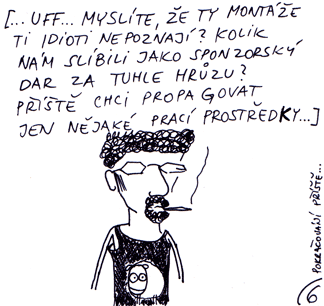 [... UFF... MYSLÍTE, ŽE TY MONTÁŽE
TI IDIOTI NEPOZNAJÍ? KOLIK
NÁM SLÍBILI JAKO SPONZORSKÝ
DAR ZA TUHLE HRŮZU?
PŘÍŠTĚ CHCI PROPAGOVAT
JEN NĚJAKÉ PRACÍ PROSTŘEDKY...]
POKRAČOVÁNÍ PŘÍŠTĚ...
6